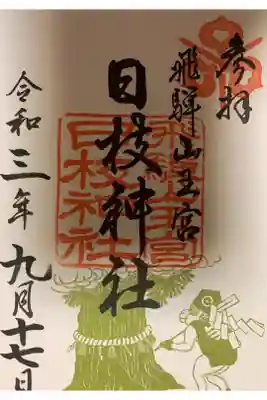 参拝
飛騨山王宮
日枝神社
飛騨山王宮
日枝神社
令和三年九月十七日